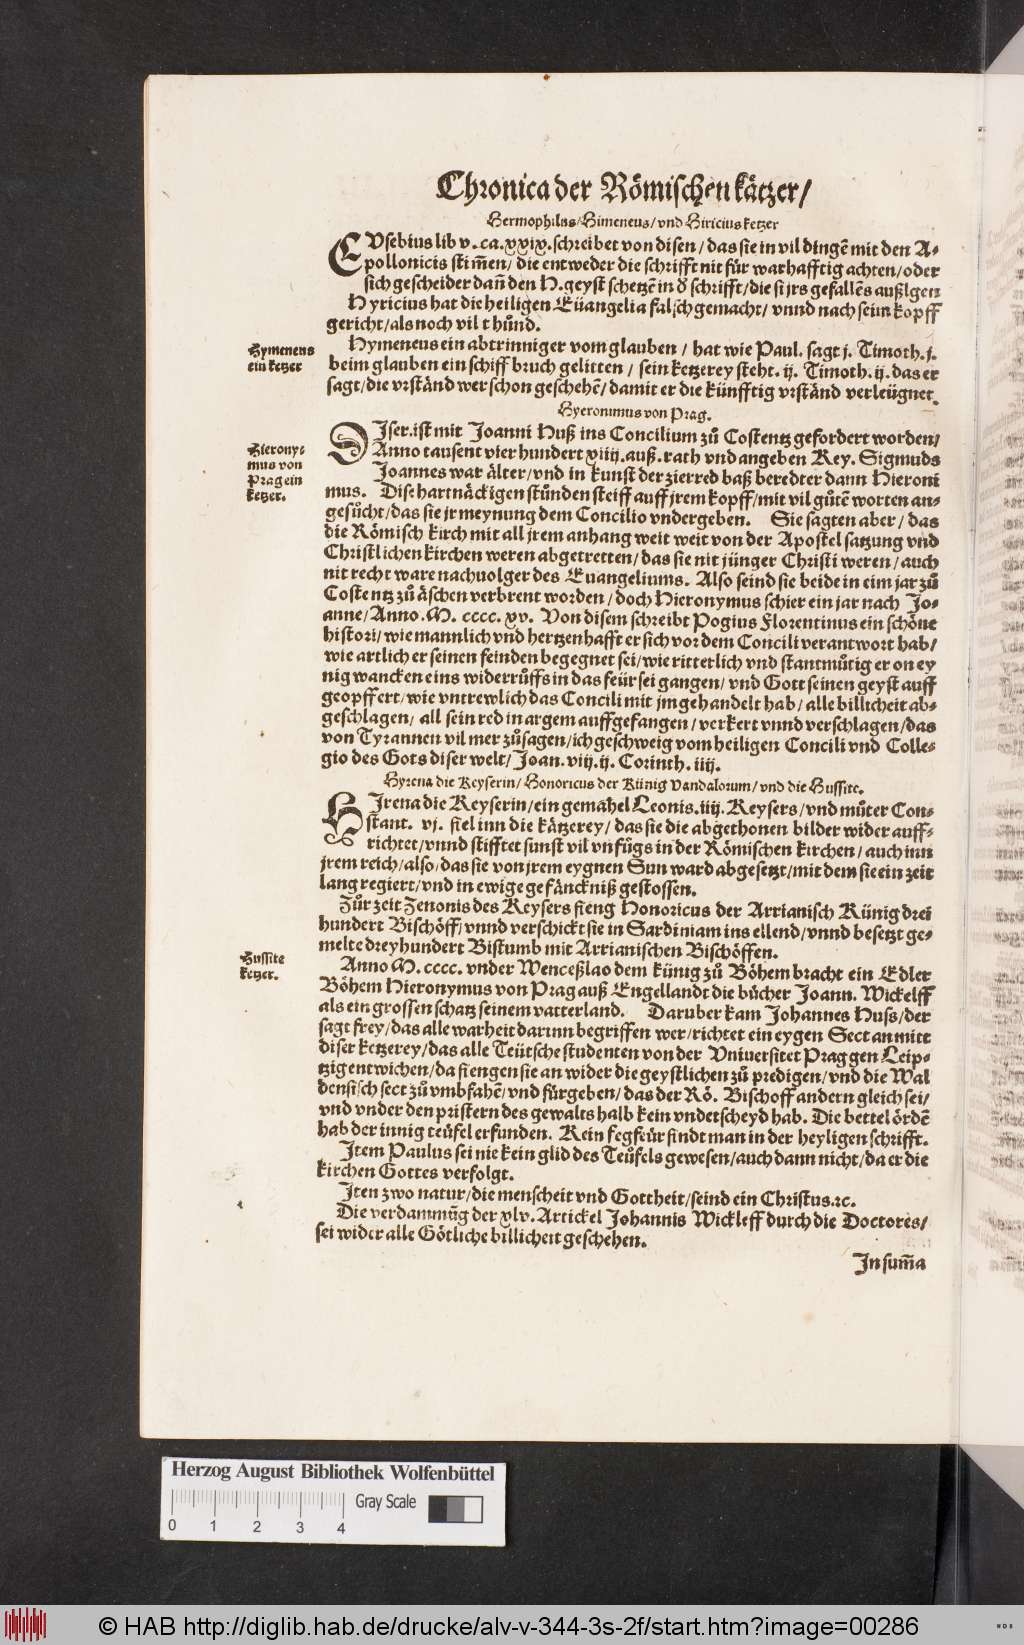 Chronica der Römischen kätzer/
Hermophilas/Himeneus/vnd Hiricius ketzer
EVsebius lib v. ca. xxix. schreibet von disen/das sie in vil dingē mit den A-
pollonicis stim̄en/ die entweder die schrifft nit für warhafftig achten/oder
sich gescheider dañ den H. geyst schetzē in d̓ schrifft/die si jrs gefallēs außlgen
Hyricius hat die heiligen Eüangelia falsch gemacht/ vnnd nach seim kopff
gericht/als noch vil thůnd.
Hymeneus ein abtrinniger vom glauben/ hat wie Paul. sagt j. Timoth. j.
beim glauben ein schiff bruch gelitten/ sein ketzerey steht. ij. Timoth. ij. das er
sagt/die vrständ wer schon geschehē/damit er die künfftig vrständ verleügnet.
Hymeneus
ein ketzer
Hyeronimus von Prag.
DIser. ist mit Joanni Huß ins Concilium zů Costentz gefordert worden/
Anno tausent vier hundert xiiij. auß. rath vnd angeben Key. Sigmūds
Joannes war älter/vnd in kunst der zierred baß beredter dann Hieroni
mus. Dise hartnäckigen stůnden steiff auff jrem kopff/mit vil gůtē worten an-
gesůcht/das sie jr meynung dem Concilio vndergeben. Sie sagten aber/ das
die Römisch kirch mit all jrem anhang weit weit von der Apostel satzung vnd
Christlichen kirchen weren abgetretten/das sie nit jünger Christi weren/auch
nit recht ware nachuolger des Euangeliums. Also seind sie beide in eim jar zů
Costentz zů äschen verbrent worden/ doch Hieronymus schier ein jar nach Jo-
anne/Anno. M. cccc. xv. Von disem schreibt Pogius Florentinus ein schöne
histori/wie mannlich vnd hertzenhafft er sich vor dem Concili verantwort hab/
wie artlich er seinen feinden begegnet sei/wie ritterlich vnd stantmůtig er on ey
nig wancken eins widerrůffs in das feür sei gangen/ vnd Gott seinen geyst auff
geopffert/wie vntrewlich das Concili mit jm gehandelt hab/alle billicheit ab-
geschlagen/ all sein red in argem auffgefangen/verkert vnnd verschlagen/das
von Tyrannen vil mer zůsagen/ich geschweig vom heiligen Concili vnd Colle-
gio des Gots diser welt/Joan. viij. ij. Corinth. iiij.
Hierony-
mus von
Prag ein
ketzer.
Hyrena die Keyserin/ Honoricus der Künig Vandalorum/vnd die Hussite.
HIrena die Keyserin/ein gemahel Leonis. iiij. Keysers/vnd můter Con-
stant. vj. fiel inn die kätzerey/ das sie die abgethonen bilder wider auff-
richtet/vnnd stifftet sunst vil vnfůgs in der Römischen kirchen/auch inn
jrem reich/also/das sie von jrem eygnen Sun ward abgesetzt/mit dem sie ein zeit
lang regiert/vnd in ewige gefänckniß gestossen.
Zůr zeit Zenonis des Keysers fieng Honoricus der Arrianisch Künig drei
hundert Bischöff/vnnd verschickt sie in Sardiniam ins ellend/vnnd besetzt ge-
melte dreyhundert Bistumb mit Arrianischen Bischöffen.
Anno M. cccc. vnder Wenceßlao dem künig zů Böhem bracht ein Edler
Böhem Hieronymus von Prag auß Engellandt die bücher Joann. Wickelff
als ein grossen schatz seinem vatterland. Daruber kam Johannes Huss/der
sagt frey/das alle warheit darinn begriffen wer/richtet ein eygen Sect an mitt
diser ketzerey/das alle Teütsche studenten von der Vniuersitet Prag gen Leip-
tzig entwichen/da fiengen sie an wider die geystlichen zů predigen/vnd die Wal
densisch sect zů vmbfahē/vnd fürgeben/das der Rö. Bischoff andern gleich sei/
vnd vnder den pristern des gewalts halb kein vndetscheyd hab. Die bettel ördē
hab der innig teüfel erfunden. Kein fegfeür findt man in der heyligen schrifft.
Item Paulus sei nie kein glid des Teüfels gewesen/auch dann nicht/da er die
kirchen Gottes verfolgt.
Iten zwo natur/die menscheit vnd Gottheit/seind ein Christus. ꝛc.
Die verdammūg der xlv. Artickel Johannis Wickleff durch die Doctores/
sei wider alle Götliche billicheit geschehen.
Hussite
ketzer.
In sum̄a
Herzog August Bibliothek Wolfenbüttel
Gray Scale
0 1 2 3 4
© HAB http://diglib.hab.de/drucke/alv-v-344-3s-2f/start.htm?image=00286